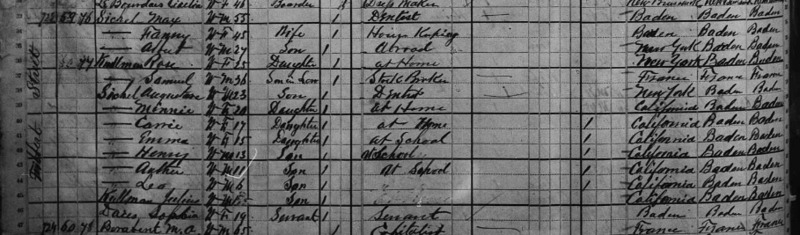 Boarder Dress Maker New Brunswick
724 59 76 Sichel Max W M 55 Dentist Baden Baden Baden
— Fanny W F 45 Wife 1 House Keeping Baden Baden Baden
— W M 27 Son 1 Abroad New York Baden Baden
60 77 Rose W F 25 Daughter 1 at Home New York Baden Baden
— Samuel W M 36 Son in Law 1 Stock Broker France France France
Sichel W M 23 Son 1 Dentist New York Baden Baden
— Minnie W F 20 Daughter 1 at Home California Baden Baden
— Carrie W F 17 Daughter 1 at Home 1 California Baden Baden
— Emma W F 15 Daughter 1 at School 1 California Baden Baden
— Henry W M 13 Son 1 School 1 California Baden Baden
— W M 11 Son 1 at School 1 California Baden Baden
— Leo W M 6 Son 1 1 California Baden Baden
W M Son 1 California Baden Baden
Sophia W F 19 Servant 1 Servant Baden Baden Baden
724 60 78 M. A. W M 65 1 Capitalist France France France
Street